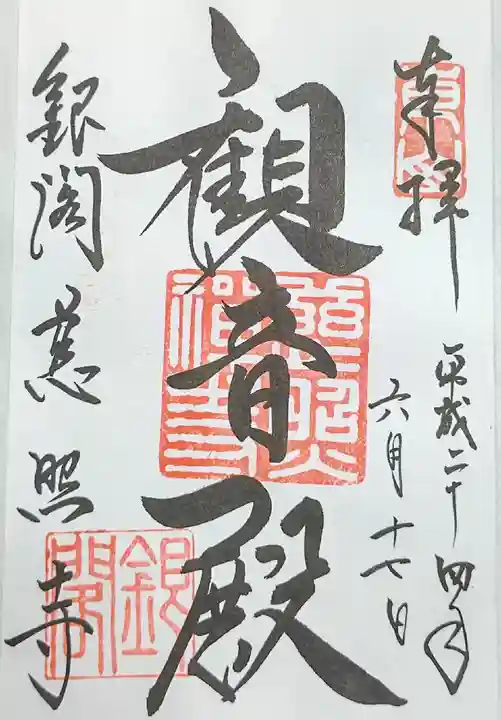 奉拝
平成二十四年
六月十七日
觀音殿
銀閣慈照寺
銀閣